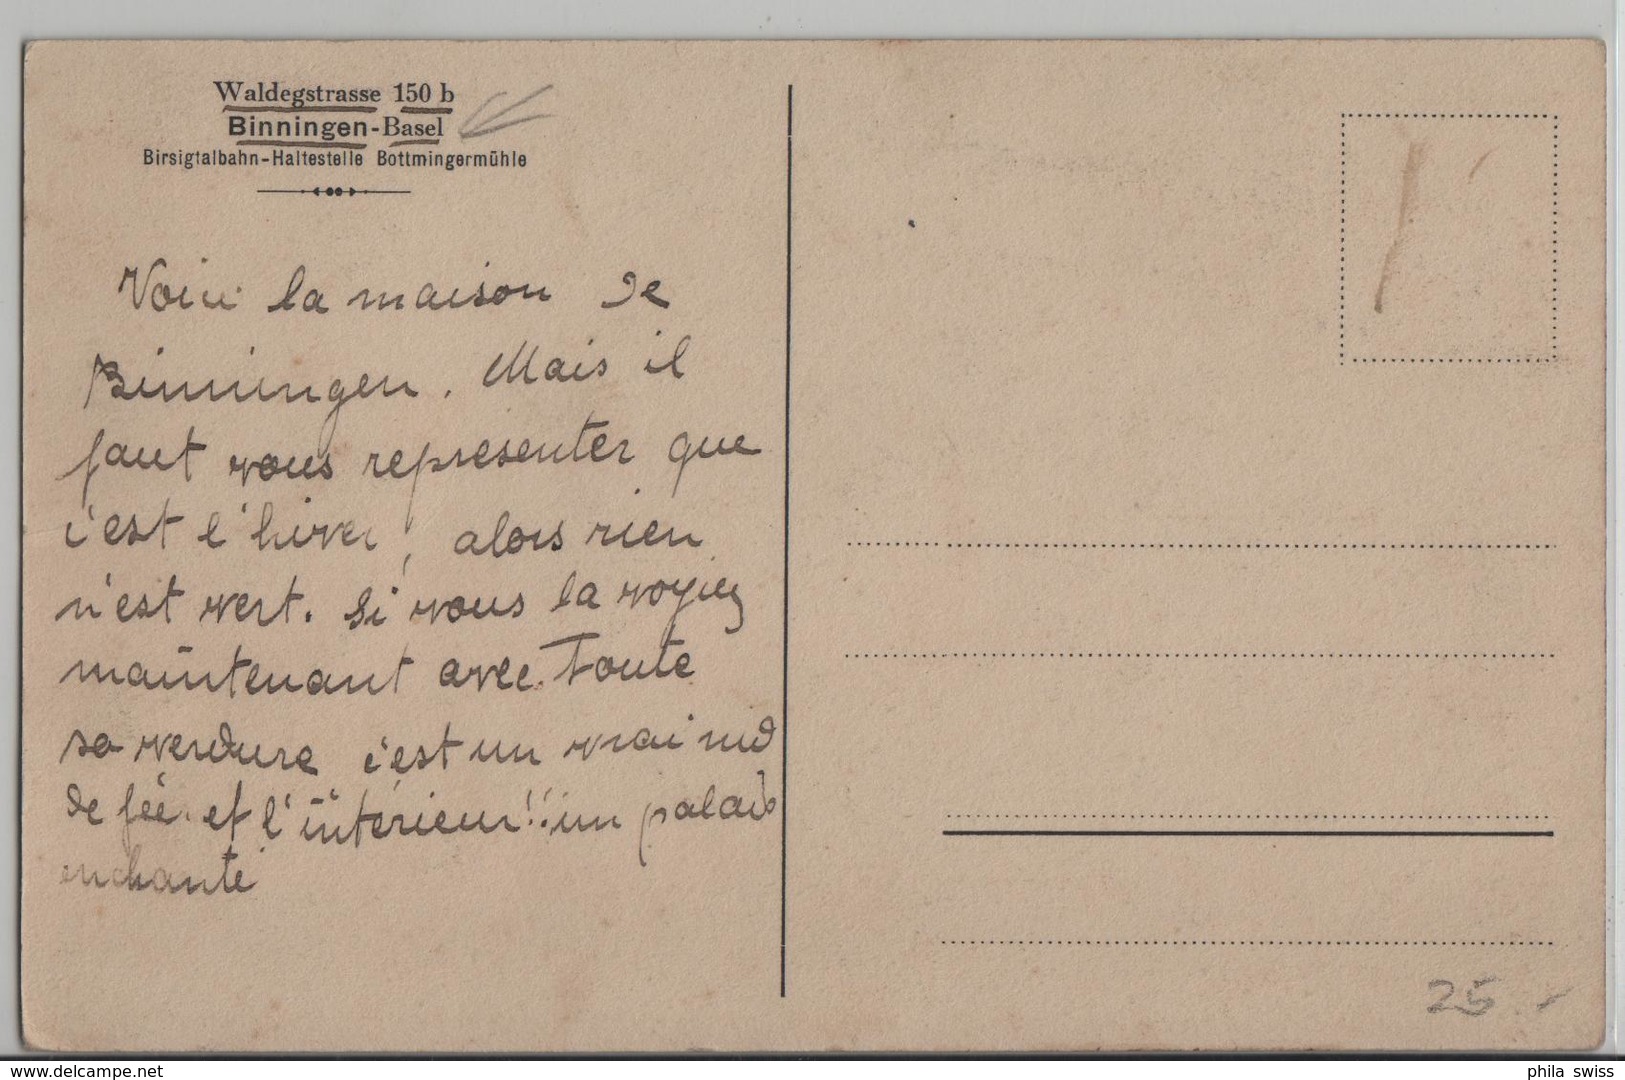 Waldegstrasse 150 b
Binningen-Basel
Birsigtalbahn-Haltestelle Bottmingermühle
Voici la maison de
Binningen. Mais il
faut vous representer que
c'est l'hiver, alors rien
n'est vert. Si vous la voyiez
maintenant avec toute
sa verdure c'est un vrai nid
de fée et l'intérieur!! un palais
enchanté
25.-
delcampe.net
phila swiss